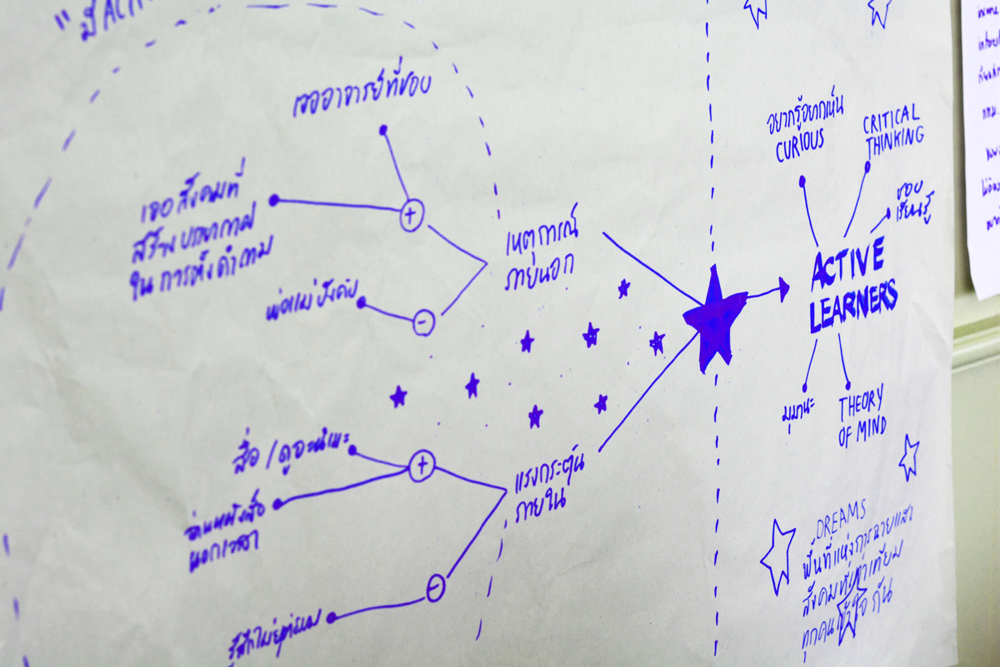 เจออาจารย์ที่ชอบ
เจอสังคมที่
สร้างบรรยากาศ
ในการตั้งคำถาม
พ่อแม่บังคับ
เหตุการณ์
ภายนอก
สื่อ / ดูอะนิเมะ
อ่านหนังสือ
นอกเวลา
แรงกระตุ้น
ภายใน
อยากรู้อยากเห็น
CURIOUS
CRITICAL
THINKING
ชอบ
เรียนรู้
ACTIVE
LEARNERS
มุมานะ
THEORY
OF MIND
DREAMS
พื้นที่แห่งการฉายแสง
สังคมที่เท่าเทียม
ทุกคนเข้าใจกัน